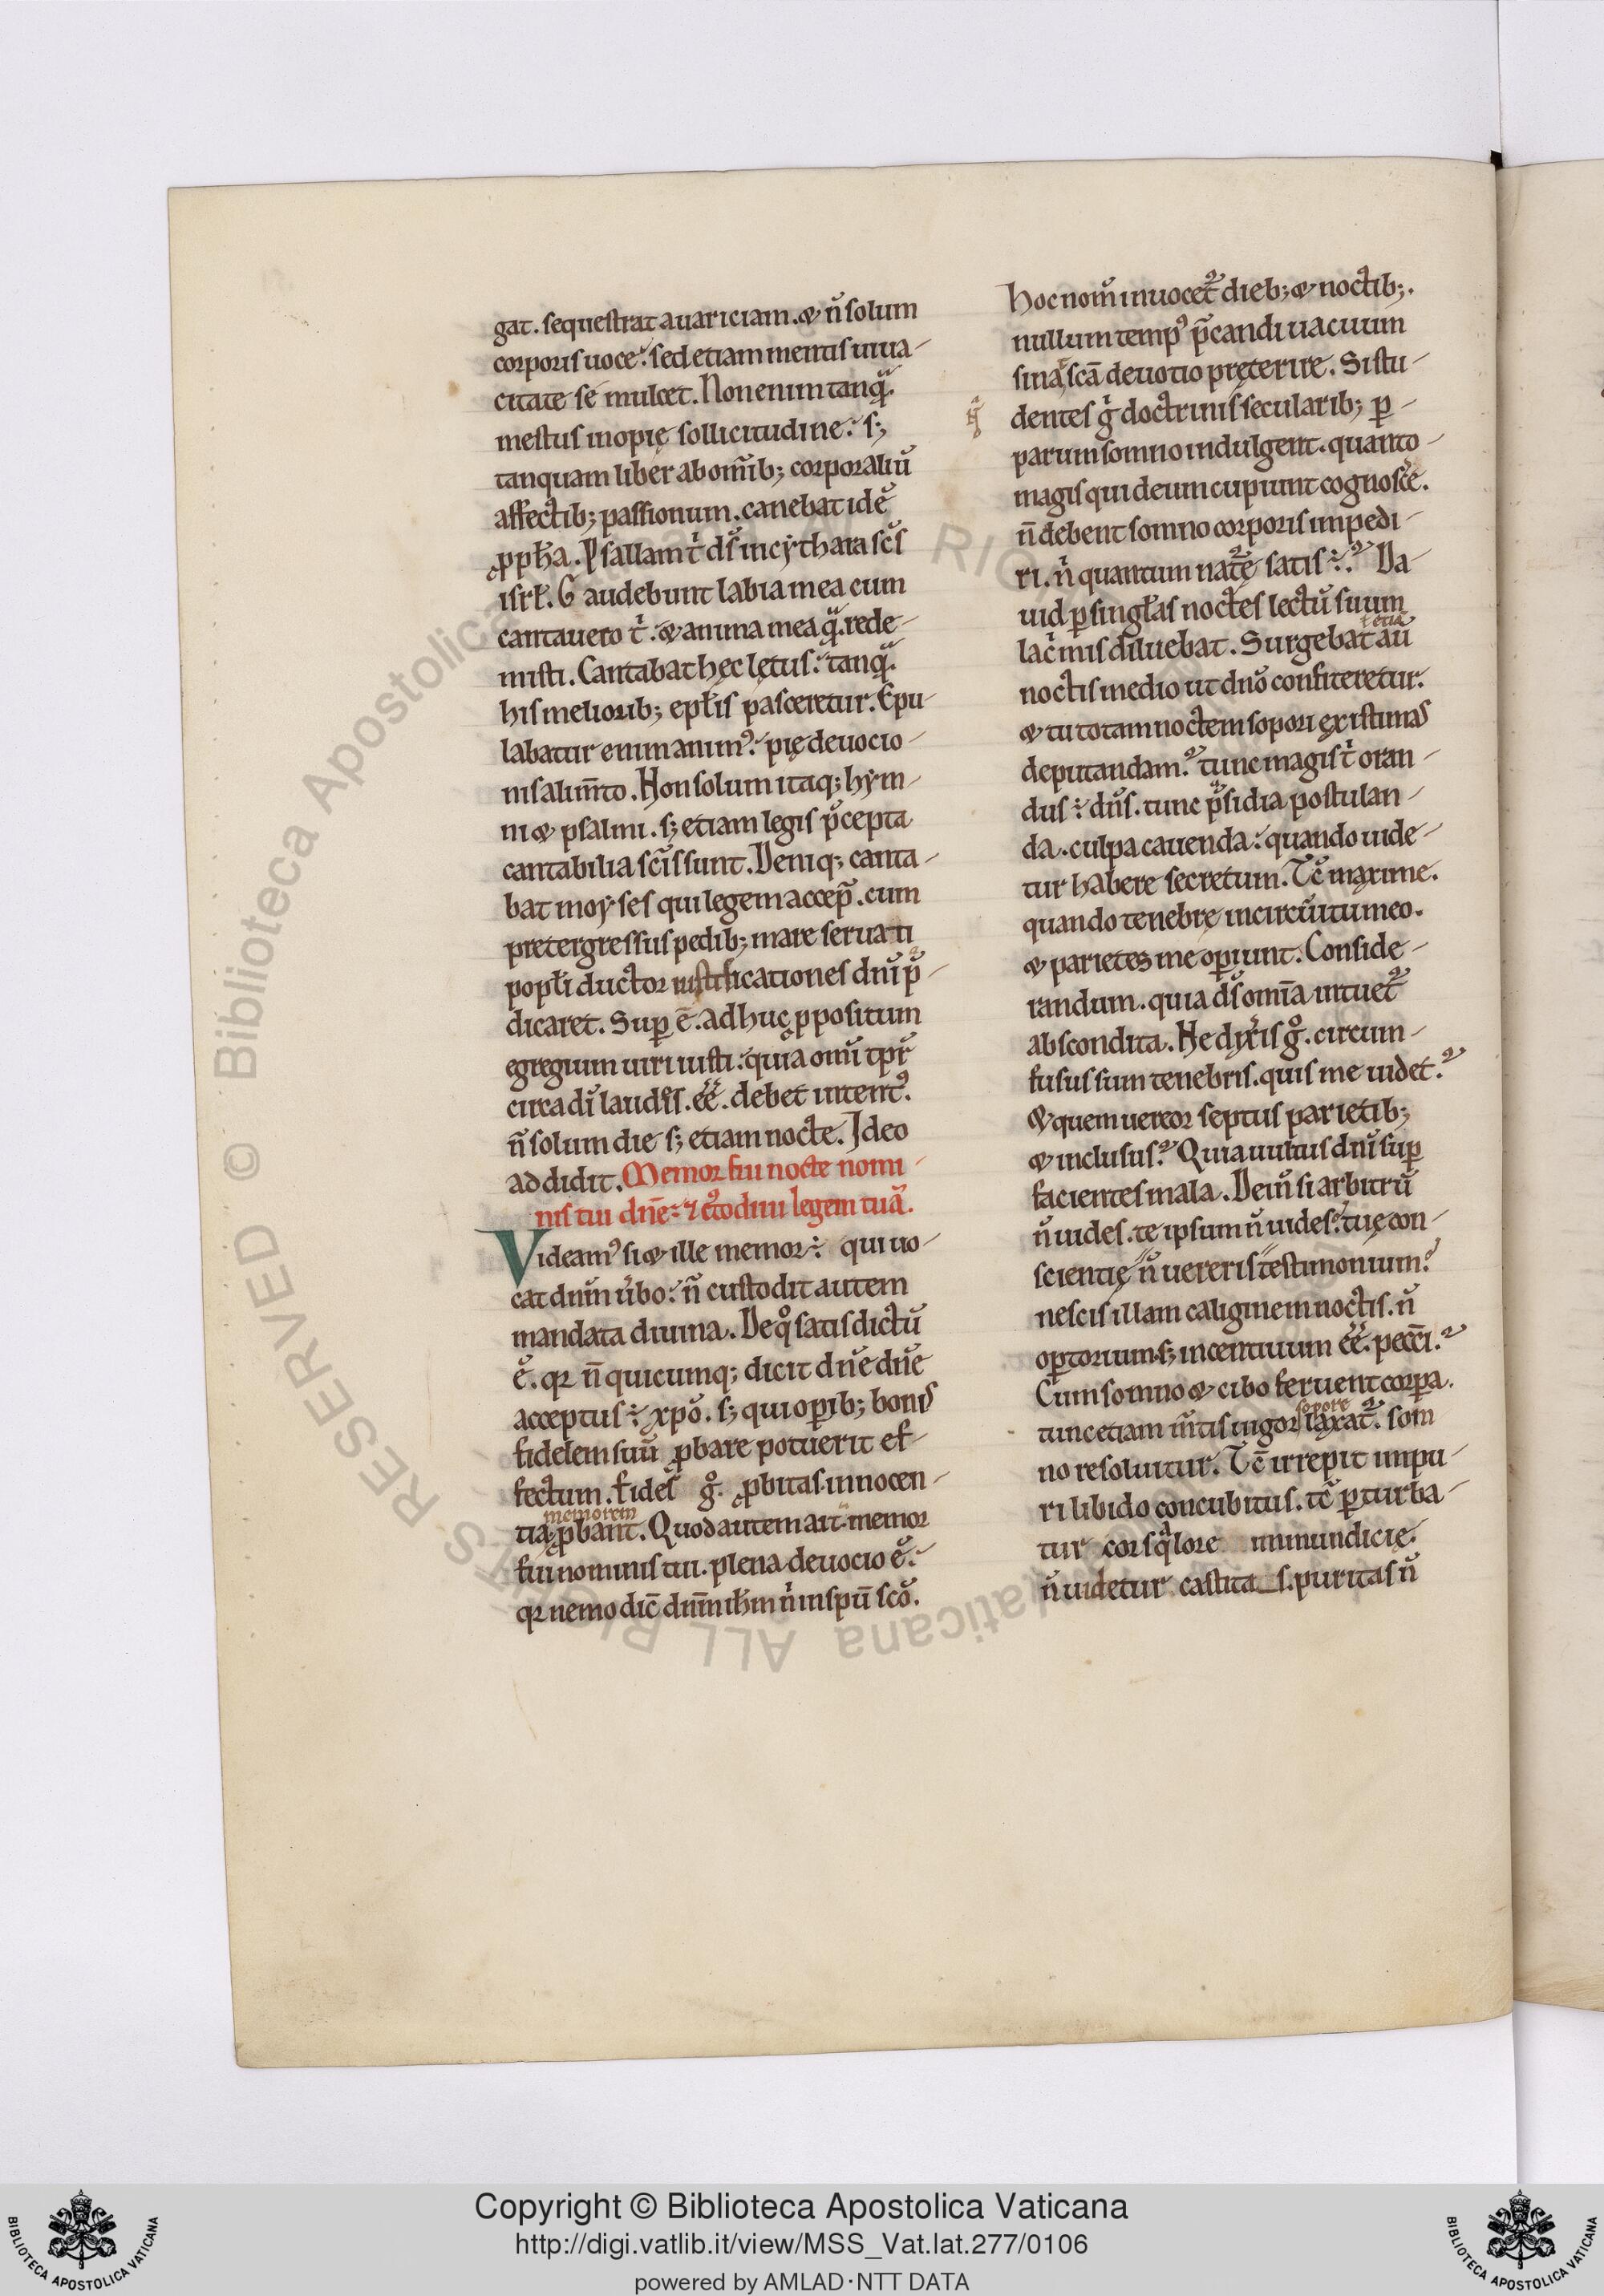 gat. sequestrat auariciam. & n̄ solum
corporis uoce: sed etiam mentis uiua-
citate se mulcet. Non enim tanqͣ.
mestus inopię sollicitudine: s;
tanquam liber ab om̄ib; corporaliū
affectib; passionum. canebat idē
ꝓph̄a. Psallam t̉ ds̄ in cythara sc̄s
isrł. Gaudebunt labia mea cum
cantauero t̉. & anima mea qͣ. rede-
misti. Cantabat hęc lętus: tanqͣ.
his meliorib; epłis pasceretur. Epu-
labatur enim animꝰ: pię deuocio-
nis alim̄to. Non solum itaq; hym-
ni & psalmi. s; etiam legis p̄cepta
cantabilia sc̄is sunt. Deniq; canta-
bat moyses qui legem accep̄. cum
pretergressus pedib; mare seruati
popłi ductor iustificationes dn̄i p̄-
dicaret. Suꝑ ē. adhuc ꝓpositum
egregium uiri iusti: quia omī tp̄r
circa dī laudes. ēē. debet intentꝰ.
n̄ solum die s; etiam nocte. Ideo
addidit. Memor fui nocte nomi-
nis tui dn̄e: & c̄todiui legem tuā.
Videamꝰ si & ille memor ÷ qui uo-
cat dnm̄ u̍bo: n̄ custodit autem
mandata diuina. De qͦ satis dictū
ē. qꝛ n̄ quicumq; dicit dn̄e dn̄e
acceptus ÷ xpō. s; qui oꝑib; bonis
fidelem suū ꝓbare potuerit ef-
fectum. fides gͦ. ꝓbitas. innocen-
memorem
tiā ꝓbant. Quod autem ait. memor
fui nominis tui. plena deuocio ē:
qꝛ nemo dic̄ dnm̄ ih̄m n̉ in spū scō.
Hoc nom̄ inuocet̃ dieb; & noctib;.
nullum tempꝰ p̄candi uacuum
sinat scā deuotio pręterire. Si stu-
dentes g̉ doctrinis secularib; ꝑ-
parum somno indulgent. quanto
magis qui deum cupiunt cognosce̍.
n̄ debent somno corporis impedi-
ri. n̉ quantum nat̃ę satis ÷. Da-
uid ꝑ singłas noctes lectū suum
etiā
lac̉mis diluebat. Surgebat aū
noctis medio ut dnō confiteretur.
& tu totam noctem sopori existimas
deputandam. tunc magis t̉ oran-
dus ÷ dn̄s. tunc p̄sidia postulan-
da. culpa cauenda: quando uide-
tur habere secretum. Tc̄ maxime.
quando tenebrę in circū itu meo.
& parietes me oꝑiunt. Conside-
randum. quia ds̄ omīa intuet̃
abscondita. Ne dixeris gͦ. circum-
fusus sum tenebris. quis me uidet.
& quem uereor septus parietib;
& inclusus. Quia uultus dn̄i suꝑ
facientes mala. Dem̄ si arbitrū
n̄ uides. te ipsum n̄ uides. tuę con-
scientię n̄ uereris testimonium.
nescis illam caliginem noctis. n̄
oꝑtorium. s; incentiuum ēē. pecc̄i.
Cum somno & cibo feruent corꝑa.
sopore
tunc etiam m̄tis uigor laxat̃. som
no resoluitur. Tc̄ irrepit impu-
ri libido concubitus. tc̄ ꝑturba-
tur cor sqͣlore inmundicię.
n̄ uidetur castitas. puritas n̄
Copyright © Biblioteca Apostolica Vaticana
http://digi.vatlib.it/view/MSS_Vat.lat.277/0106
powered by AMLAD·NTT DATA
BIBLIOTECA APOSTOLICA VATICANA
BIBLIOTECA APOSTOLICA VATICANA